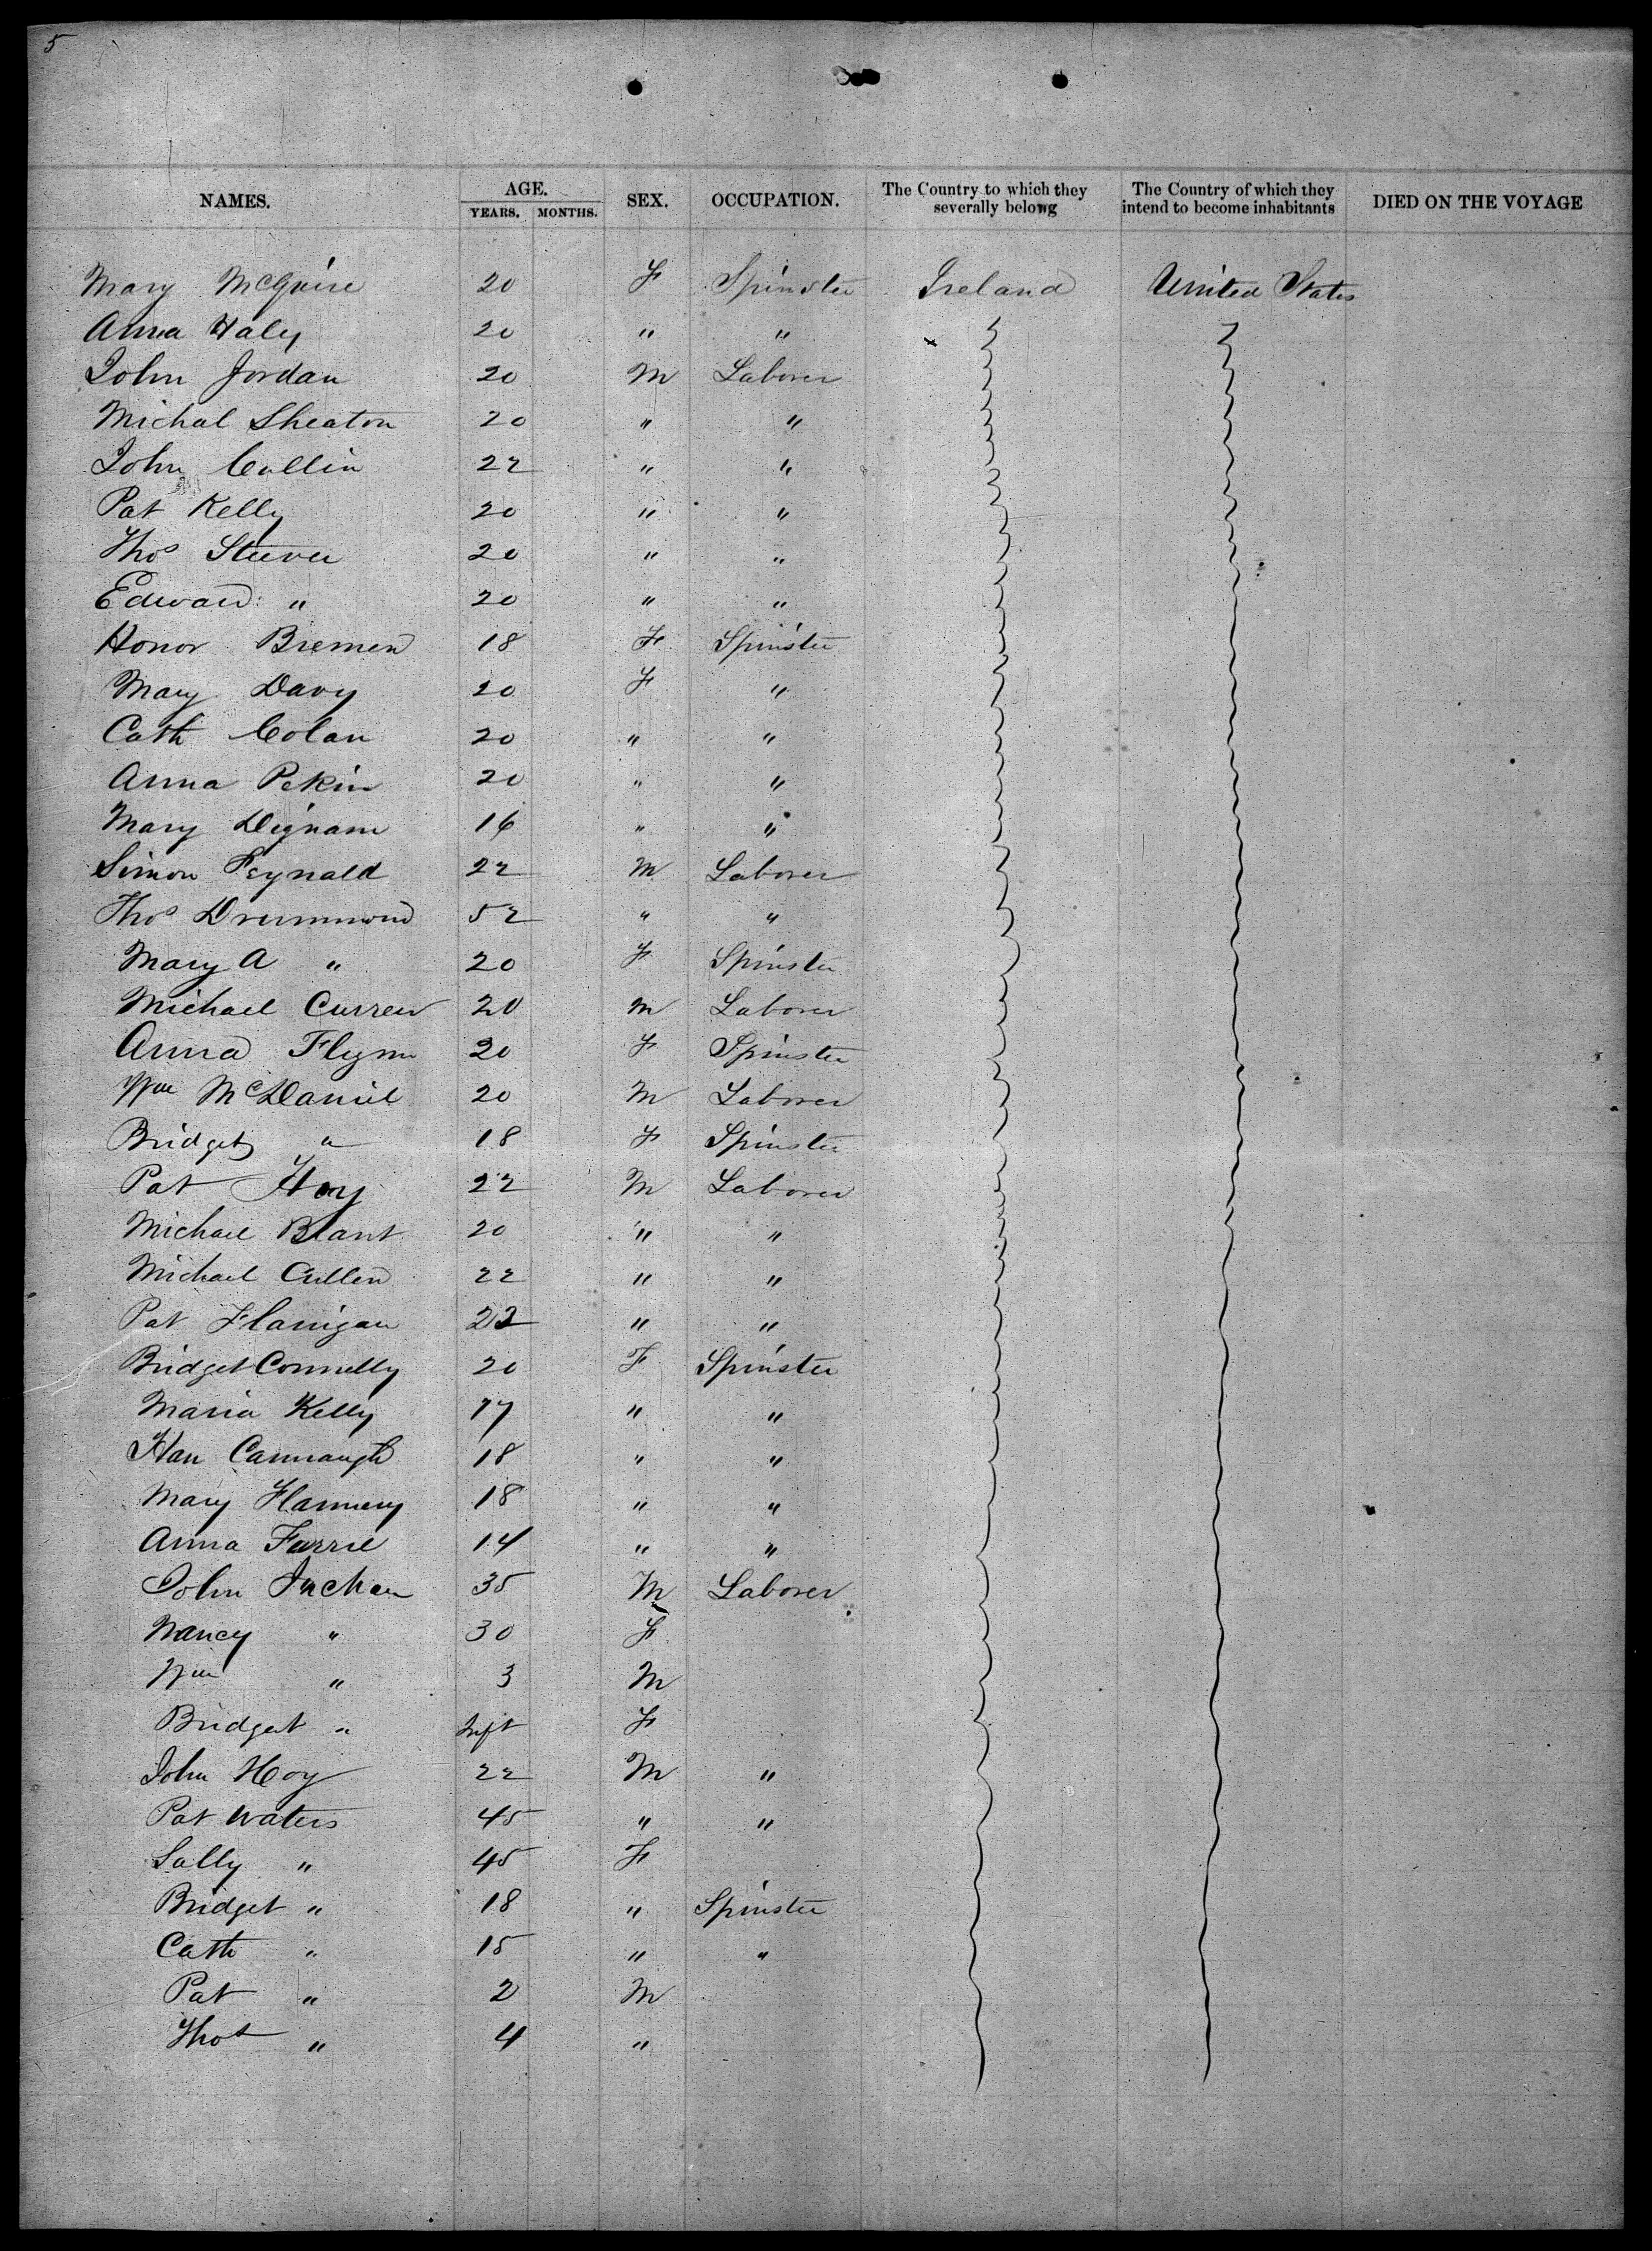 5
NAMES. AGE. SEX. OCCUPATION. The Country to which they severally belong The Country of which they intend to become inhabitants DIED ON THE VOYAGE
YEARS. MONTHS.
Mary McGuire 20 F Spinster Ireland United States
Anna Haly 20 " "
John Jordan 20 M Laborer
Michal Sheaton 20 " "
John Cullin 22 " "
Pat Kelly 20 " "
Thos 20 " "
Edward " 20 " "
Honor Bremen 18 F Spinster
Mary Davy 20 F "
Cath Colan 20 " "
Anna Pekin 20 " "
Mary Dignam 16 " "
Simon 22 M Laborer
Thos Drummond 52 " "
Mary A " 20 F Spinster
Michael Curren 20 M Laborer
Anna Flynn 20 F Spinster
Wm McDaniel 20 M Laborer
Bridget " 18 F Spinster
Pat Hoy 22 M Laborer
Michael 20 " "
Michael Cullen 22 " "
Pat Flanigan 22 " "
Bridget Connelly 20 F Spinster
Maria Kelly 17 " "
Han Cannaugh 18 " "
Mary Flannery 18 " "
Anna Farrel 14 " "
John 35 M Laborer
Nancy " 30 F
Wm " 3 M
Bridget " Inft F
John Hoy 22 M "
Pat Waters 45 " "
Sally " 45 F
Bridget " 18 " Spinster
Cath " 15 " "
Pat " 2 M
Thos " 4 "